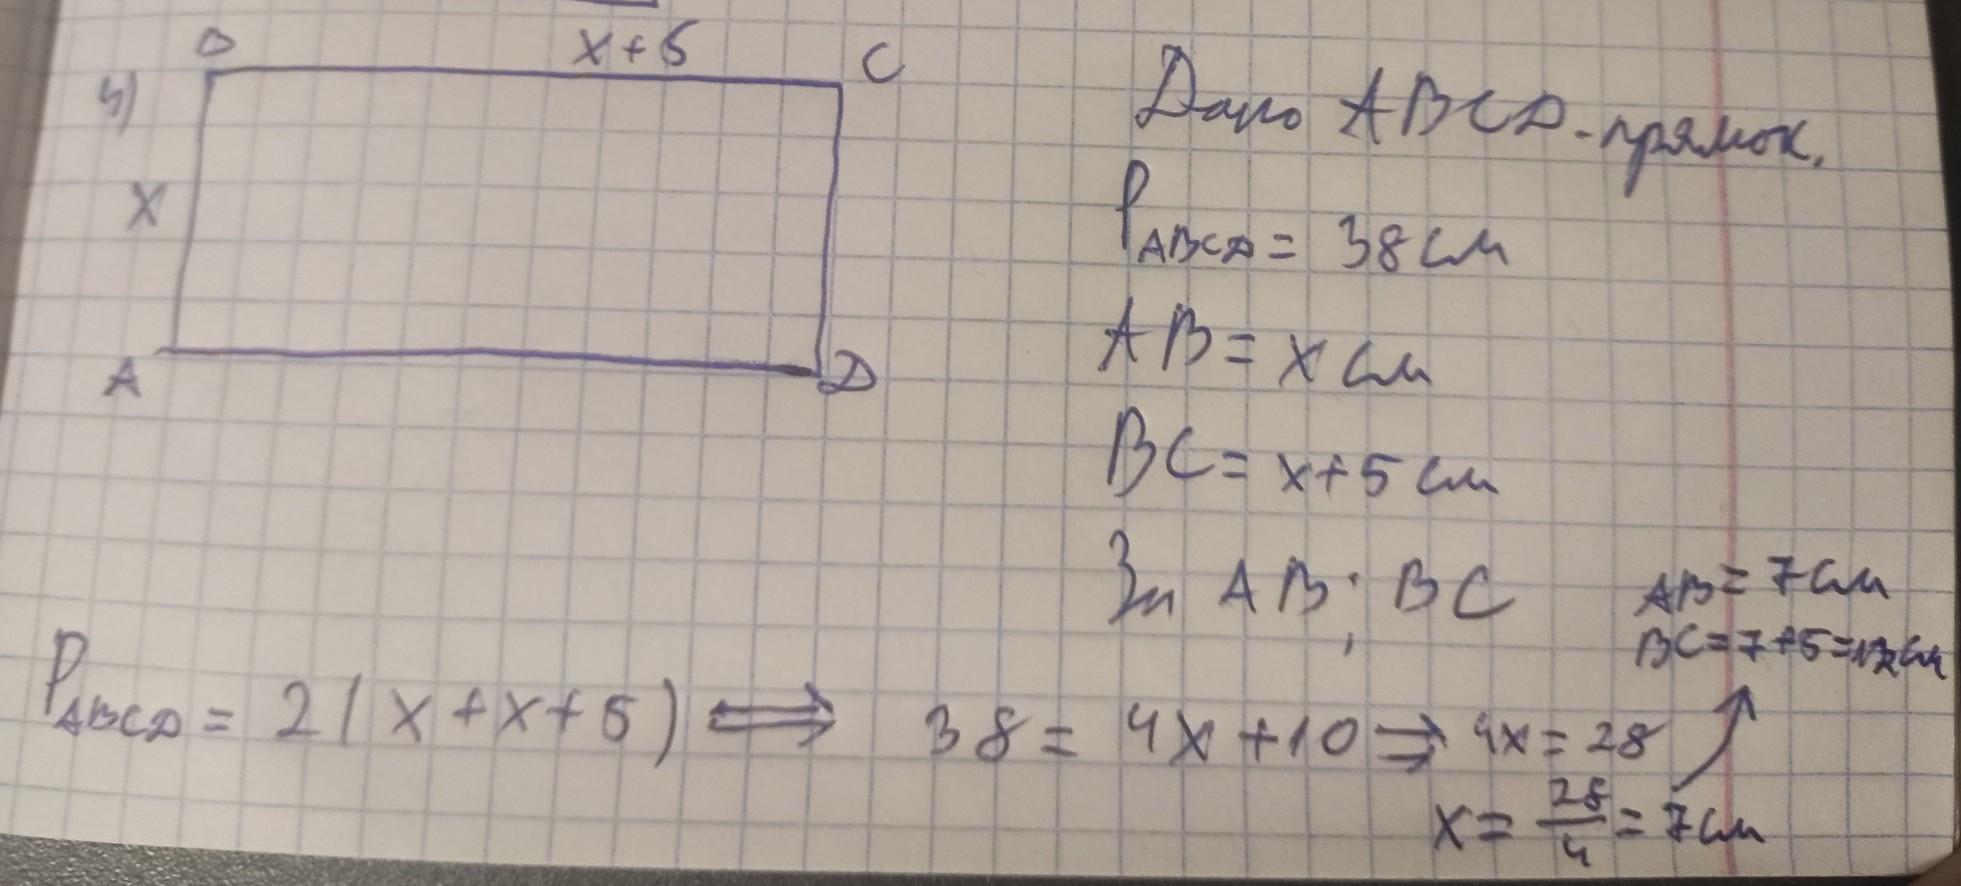 B x+5 C
4)
x
A D
Дано ABCD-прямок.
P ABCD = 38 см
AB = x см
BC = x+5 см
Зн AB; BC
AB = 7 см
BC = 7+5 = 12 см
P ABCD = 2(x+x+5) ⟺ 38 = 4x+10 ⟹ 4x = 28
x = 28/4 = 7 см